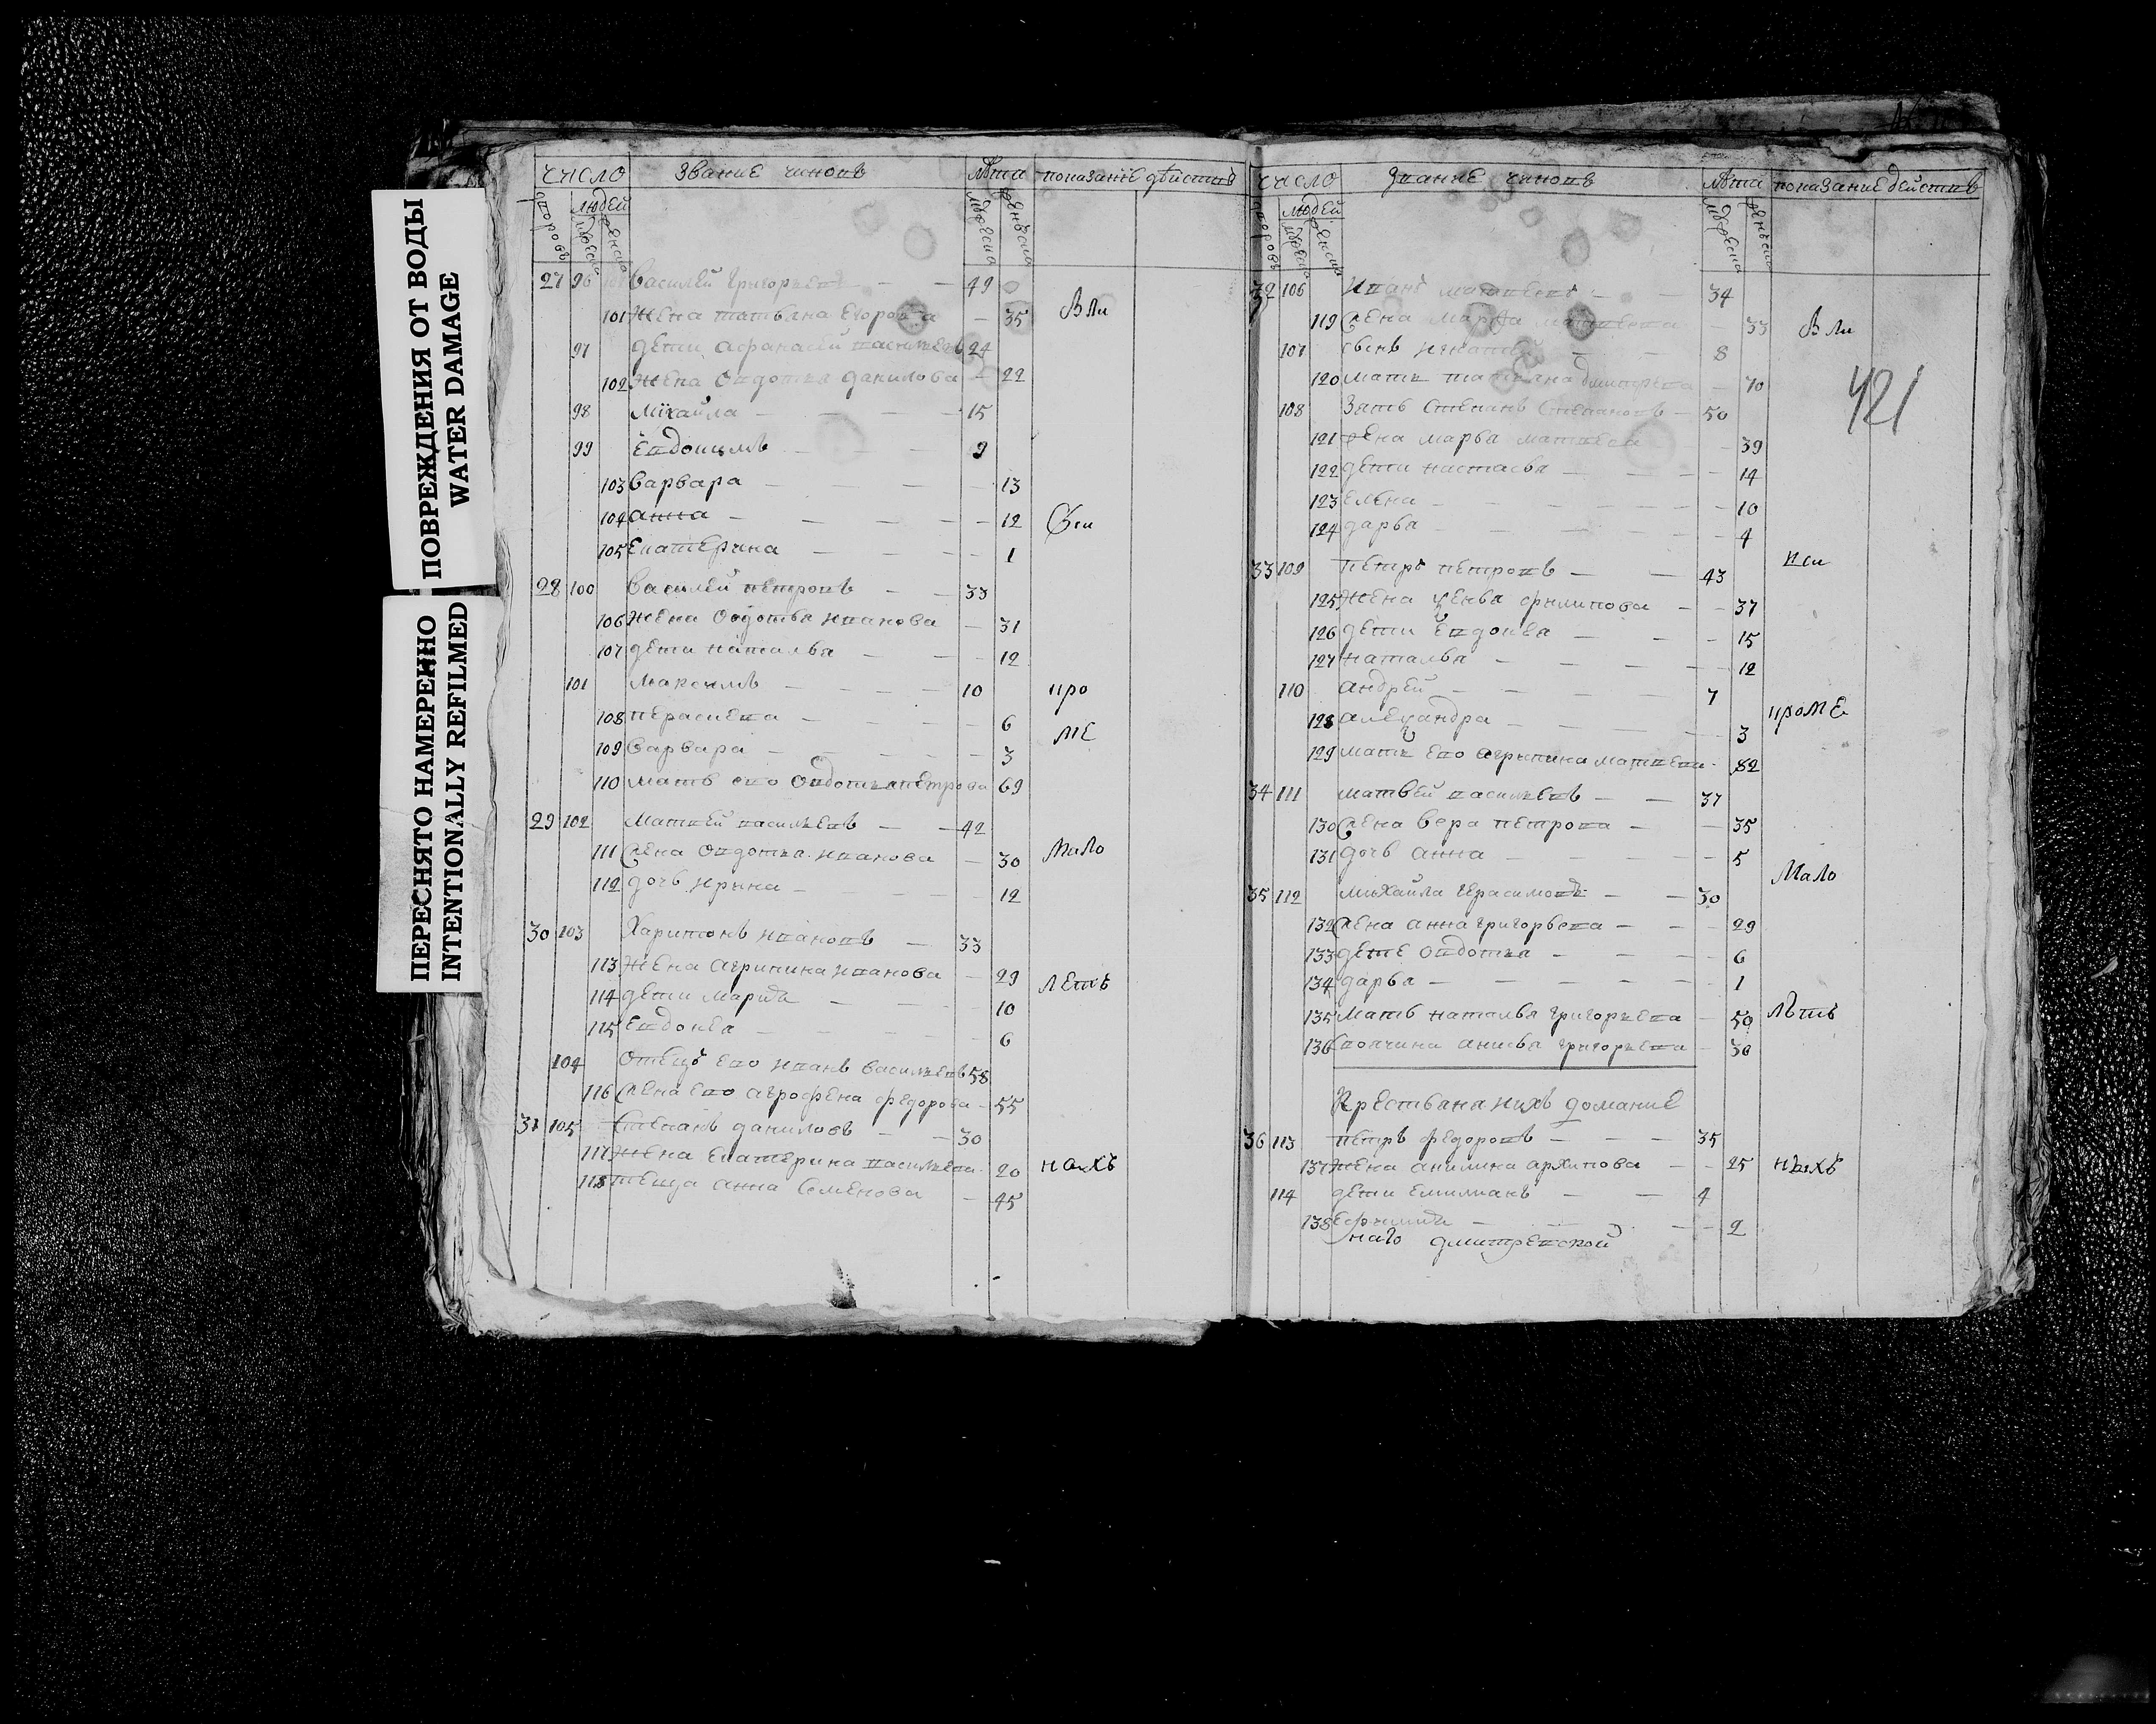 ПОВРЕЖДЕНИЯ ОТ ВОДЫ
WATER DAMAGE
ПЕРЕСНЯТО НАМЕРЕННО
INTENTIONALLY REFILMED
число звание чиновъ лѣта показание дѣйствъ
дворовъ людей мужеска женска мужеска женска
27 96 Василей Григорьевъ 49
101 жена татьяна Егорова 35 Вли
97 дети афанасей васильевъ 24
102 жена Овдотья данилова 22
98 михайла 15
99 Евдокимъ 9
103 варвара 13
104 анна 12 Сьи
105 Екатерина 1
28 100 Василей петровъ 33
106 жена Овдотья иванова 31
107 дети наталья 12
101 максимъ 10 кро
108 Парасковья 6 ме
109 варвара 3
110 мать ево Овдотья петрова 69
29 102 Матвей васильевъ 42
111 жена Овдотья иванова 30 Мало
112 дочь ирина 12
30 103 Харитонъ ивановъ 33
113 жена агрипина иванова 29 летхъ
114 дети мария 10
115 Евдокея 6
104 Отецъ ево иванъ васильевъ 58
116 жена ево агрофена федорова 55
31 105 Степанъ даниловъ 30
117 жена Екатерина васильева 20 ныхъ
118 теща анна Семенова 45
число звание чиновъ лѣта показание действъ
дворовъ людей мужеска женска мужеска женска
421
32 106 Иванъ матвеевъ 34
119 жена марфа матвеева 33 Вли
107 сынъ игнатей 8
120 мать татьяна дмитрева 70
108 Зять Степанъ Степановъ 50
121 жена марья матвеева 39
122 дети настасья 14
123 елена 10
124 дарья 4
33 109 Петръ петровъ 43 вси
125 жена ксенья филипова 37
126 дети Евдокея 15
127 наталья 12
110 андрей 7 кроме
128 александра 3
129 мать ево агрипина матвеева 82
34 111 матвей васильевъ 37
130 жена вера петрова 35
131 дочь анна 5 Мало
35 112 михайла герасимовъ 30
132 жена анна григорьева 29
133 дети овдотья 6
134 дарья 1
135 мать наталья григорьева 50 лѣтъ
136 анисья григорьева 30
Крестьяна ихъ
36 113 петръ федоровъ 35
137 жена акилина архипова 25 ныхъ
114 дети емильянъ 4
138 Ефимия 2
наго дмитревской